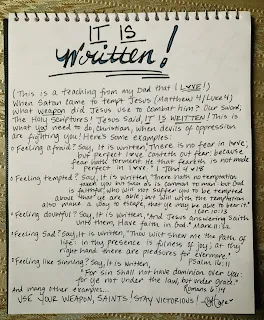 IT IS
Written!
(This is a teaching from my Dad that I LOVE!)
When Satan came to tempt Jesus (Matthew 4/Luke 4)
what weapon did Jesus use to combat him? Our Sword,
The Holy Scriptures! Jesus said, IT IS WRITTEN! This is
what you need to do, Christian, when devils of oppression
are fighting you! Here's some examples:
Feeling afraid? Say, It is written, "There is no fear in love;
but perfect love casteth out fear: because
fear hath torment. He that feareth is not made
perfect in love." I John 4:18
Feeling tempted? Say, It is written, "There hath no temptation
taken you but such as is common to man: but God
is faithful who will not suffer you to be tempted
above that ye are able; but will with the temptation
also make a way to escape, that ye may be able to bear it."
I Cor. 10:13
Feeling doubtful? Say, It is written, "And Jesus answering saith
unto them, Have faith in God." Mark 11:22
Feeling Sad? Say, It is written, "Thou wilt shew me the path of
life: in thy presence is fulness of joy; at thy
right hand there are pleasures for evermore."
Psalm 16:11
Feeling like sinning? Say, It is Written,
"For Sin shall not have dominion over you:
for ye are not under the law, but under grace."
Romans 6:14
and many other examples...
USE YOUR WEAPON, SAINTS! STAY VICTORIOUS!